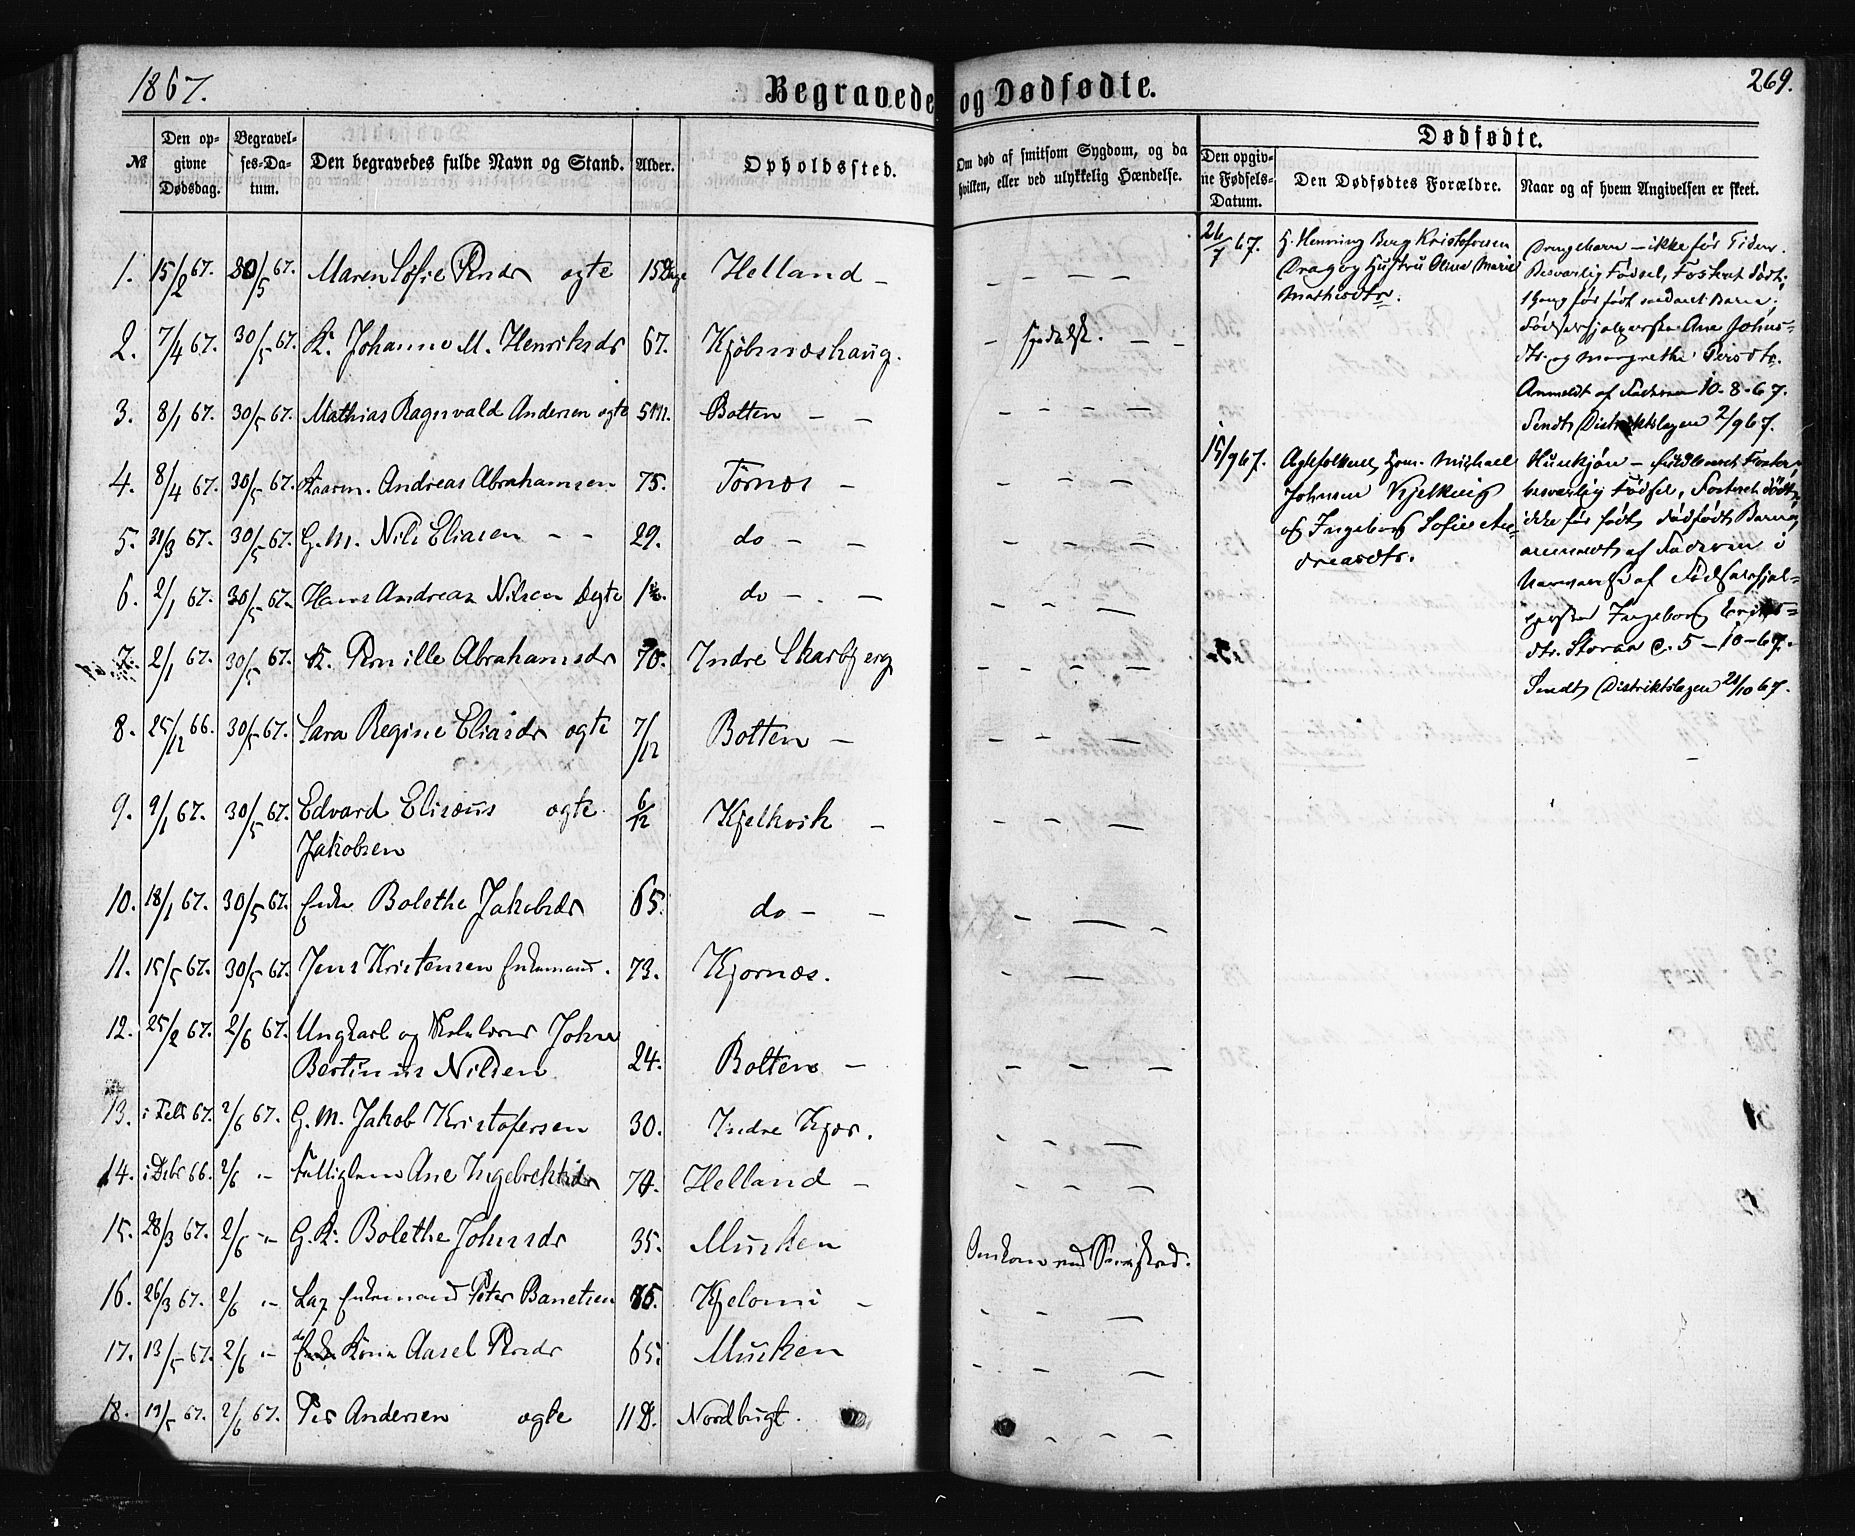 1867.
Begravede og Dødfødte.
269.
№
Den op-
givne
Dødsdag.
Begravel-
ses-Da-
tum.
Den begravedes fulde Navn og Stand.
Alder.
Opholdssted.
Om død af smitsom Sygdom, og da
hvilken, eller ved ulykkelig Hændelse.
Dødfødte.
Den opgiv-
ne Fødsels-
Datum.
Den Dødfødtes Forældre.
Naar og af hvem Angivelsen er skeet.
1. 15/2 67. 30/5 67. Maren Sofie Persdr ægte 15 Dage Helland -
2. 7/4 67. 30/5 67. K. Johanne M. Henriksdr 67. Kjøbnæshaug. - spedalsk. - -
3. 8/1 67. 30/5 67. Mathias Ragnvald Andersen ægte 5 M. Botten - -
4. 8/4 67. 30/5 67. Kaarm. Andreas Abrahamsen 75. Törnæs -
5. 31/3 67. 30/5 67. G. M. Nils Eliasen - - 29. do - -
6. 2/1 67. 30/5 67. Hans Andreas Nilsen ægte do - -
7. 2/1 67. 30/5 67. K. Pernille Abrahamsdr 70. Indre Skarbjerg
8. 25/12 66. 30/5 67. Sara Regine Eliasdr ægte 7/12 Botten -
9. 9/1 67. 30/5 67. Edvard Elisæus ægte 6/12 Kjelkvik -
Jakobsen
10. 18/1 67. 30/5 67. Enke Bolethe Jakobsdr 65. do - -
11. 15/5 67. 30/5 67. Jens Kristensen Enkemand. 73. Kjornæs.
12. 25/2 67. 2/6 67. Ungkarl og Skolelærer Johan
Bertinius Nilsen 24. Botten -
13. i Feb 67. 2/6 67. G. M. Jakob Kristofersen 30. Indre Kjær.
14. i Debr 66. 2/6 " Fattiglem Ane Ingebrektsdr 70. Helland -
15. 28/3 67. 2/6 " G. K. Bolethe Johnsdr 35. Musken Omkom ved Sneskred.
16. 26/3 67. 2/6 " Lap Enkemand Peter Banetsen 85. Kjelomi -
17. 13/5 67. 2/6 " Kone Aasel Persdr 65. Musken
18. 13/5 67. 2/6 67. Per Andersen ægte 11 D. Nordbugt.
26/7 67.
H. Henning Berg Kristofersen
Drag og Hustru Oline Marie
Mathisdtr.
Drengebarn - ikke før Tiden.
Besværlig Fødsel, Fosteret dødt,
1 Gang før født Barn,
Fødselshjælperske Ane Johns-
dtr. og Margrethe Persdtr.
Anmeldt af Faderen 10-8-67.
Sendt Distriktslægen 2/9 67.
15/9 67.
Ægtefolkene, Hm. Michael
Johnsen Kjelkvig
og Ingeborg Sofie An-
dreasdtr.
Hunkjøn - fuldbaaret Foster,
besværlig Fødsel, Fosteret dødt,
ikke før født dødfødt Barn,
anmeldt af Faderen i
Nærværelse af Fødselshjæl-
persken Ingeborg Eriks-
dtr. Storaa d. 5-10-67.
Sendt Distriktslægen 21/10 67.